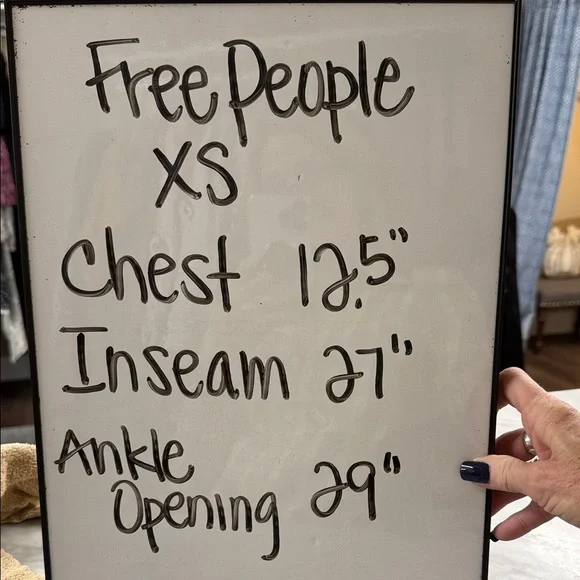 Free People
XS
Chest 12.5"
Inseam 27"
Ankle
Opening 29"